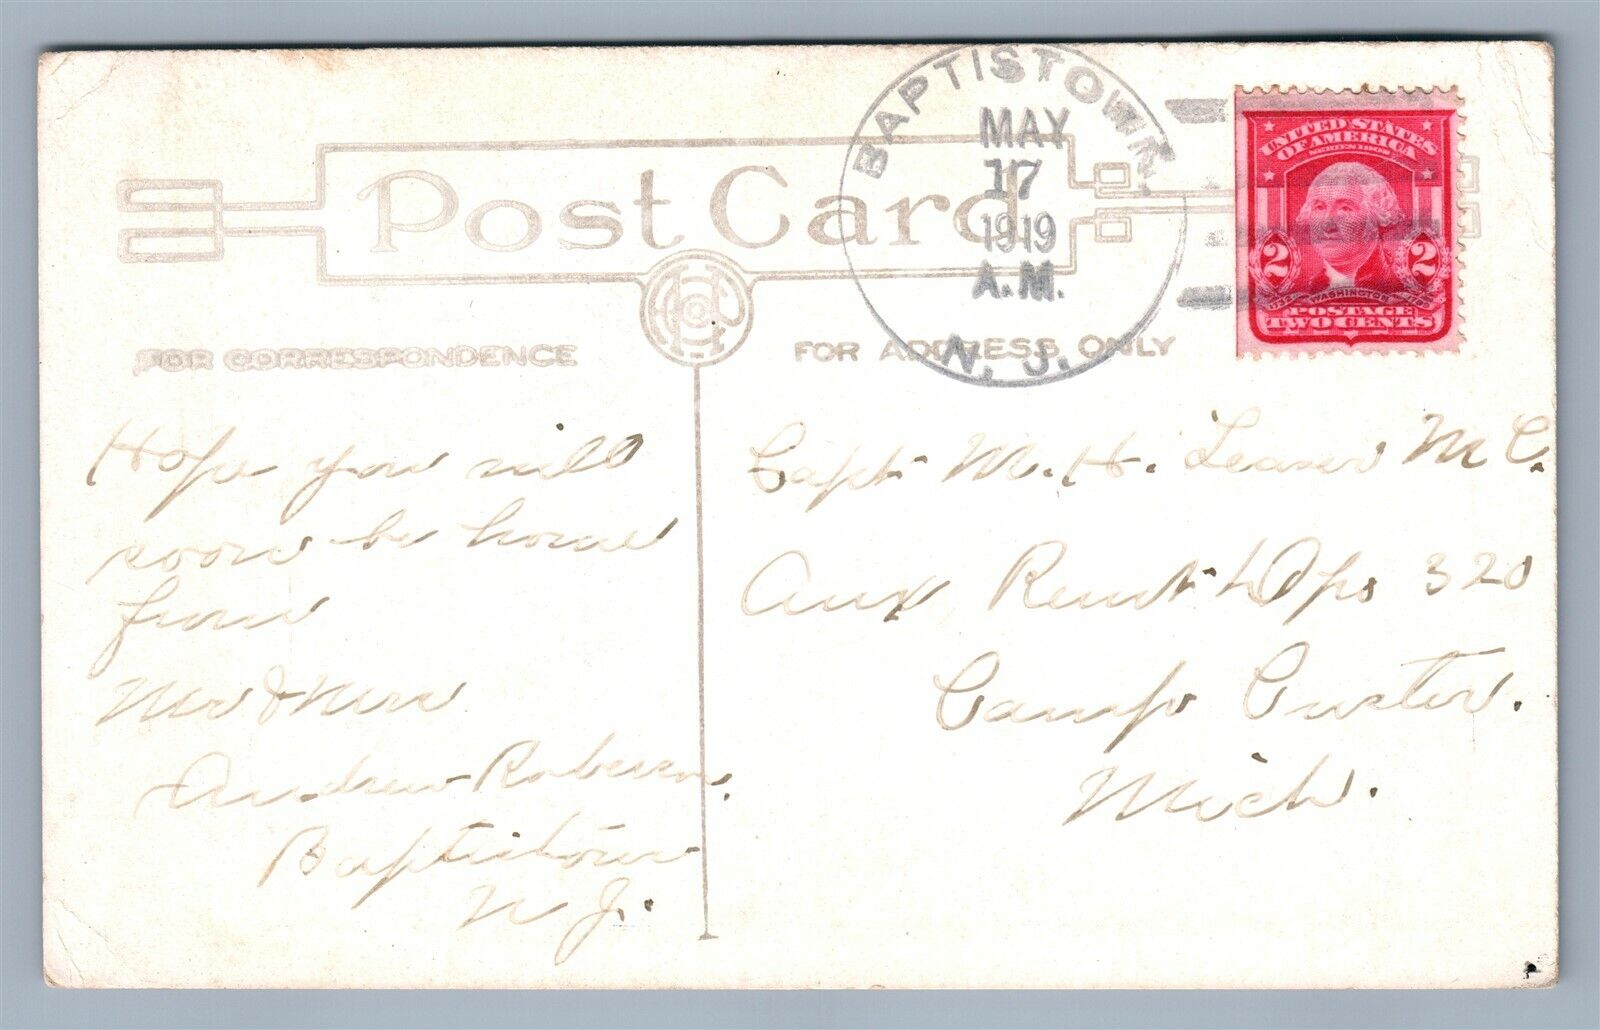 BAPTISTOWN,
MAY
17
1919
A.M.
N. J.
UNITED STATES
OF AMERICA
SERIES 1902
2 2
1732 WASHINGTON 1799
POSTAGE
TWO CENTS
Post Card
FOR CORRESPONDENCE
FOR ADDRESS ONLY
Hope you will
soon be home
from
Mr & Mrs
Andrew Roberson.
Baptistown
N J.
Capt. M. H. Leaver M C.
Aux Remt Dpo 320
Camp Custer.
Mich.